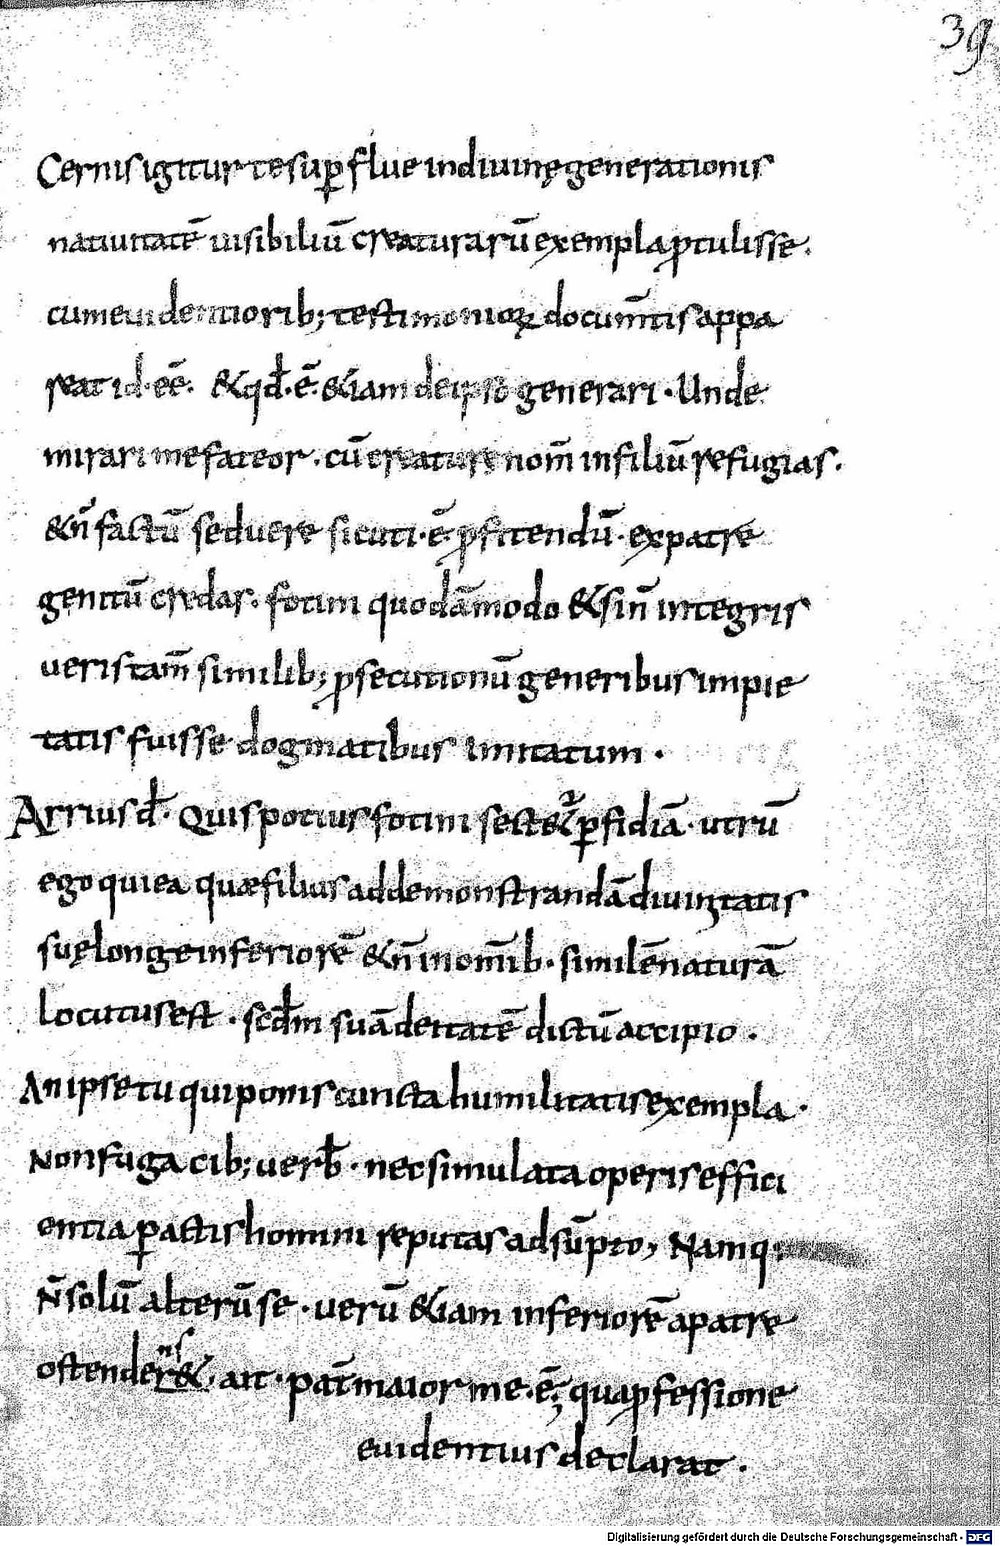 39
Cernis igitur te sup̄flue indiuinę generationis
natiuitatē uisibiliū creaturarū exempla ꝓtulisse.
cum euidentiorib; testimonioꝝ docum̄tis appa
reat id·eē. &qd̄·ē·&iam de ipso generari·Unde
mirari me fateor·cū creaturę nom̄ infiliū refugias.
&n̄ factū sed uere sicuti·ē·ꝓfitendū·expatre
genitū credas. fotini quodāmodo &sin̄ integris
ueris tam̄ similib; ꝓsecutionū generibus impie
tatis fuisse dogmatibus imitatum.
Arrius d̄· Quis potius fotini sect&ur ꝑfidiā·utrū
ego qui ea quæ filius ad demonstrandā diuinitatis
suę longe inferiorē &n̄ in om̄ib·similē naturā
locutus est·scd̄m suā deitatē dictū accipio.
An ipse tu qui ponis cuncta humilitatis exempla.
Non fugacib; uerb̄·nec simulata operis effici
entia ꝑactis homini reputas adsūpto, Namq;
N̄ solū alterū se·uerū &iam inferiorē apatre
ostendens & ait·pat̄ maior me·ē; qua ꝓfessione
euidentius declarat.
Digitalisierung gefördert durch die Deutsche Forschungsgemeinschaft - DFG